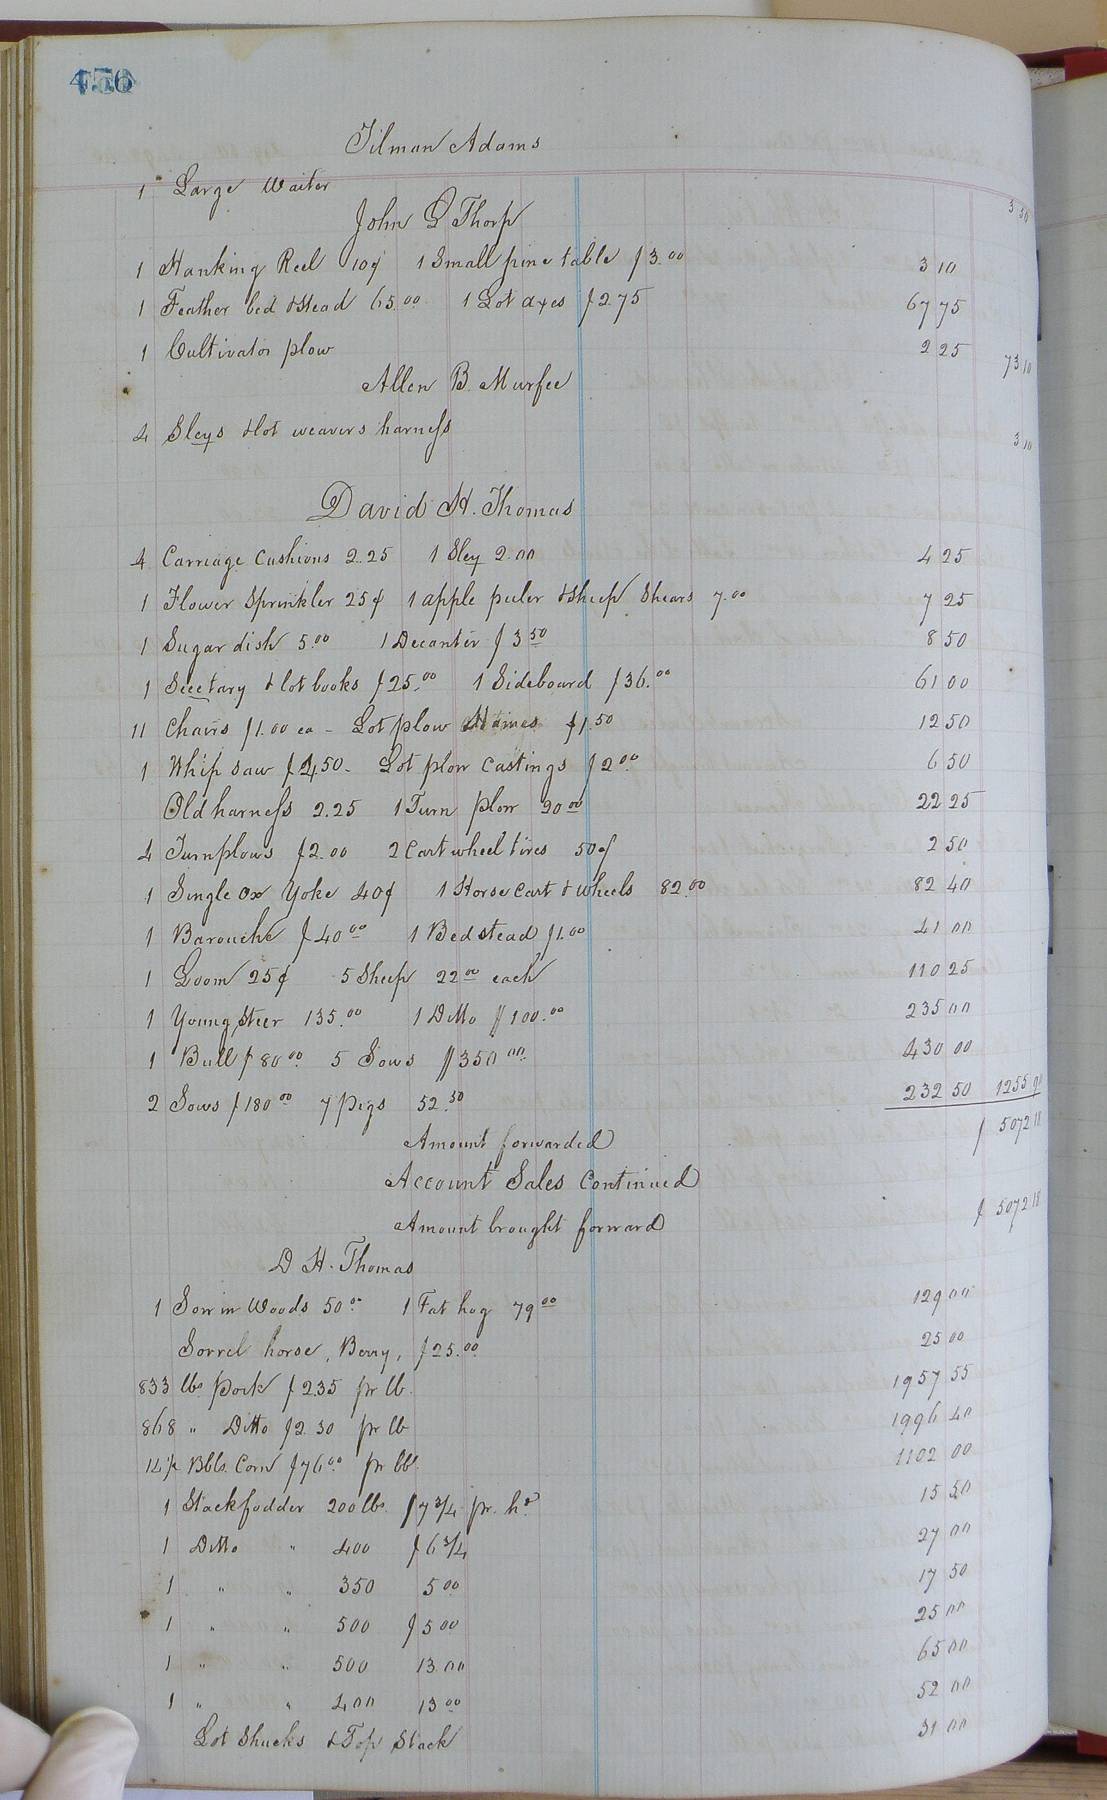 456
Tilman Adams
1 Large Waiter 3 50
John D Thorp
1 Hanking Reel 10¢ 1 Small pine table $3.00 3 10
1 Feather bed & Stead 65.00 1 Lot axes $2 75 67 75
1 Cultivator plow 2 25 73 10
Allen B. Murfee
4 Sleys & lot weavers harness 3 10
David H. Thomas
4 Carriage Cushions 2.25 1 Sley 2.00 4 25
1 Flower Sprinkler 25¢ 1 apple peeler & Sheep Shears 7.00 7 25
1 Sugar dish 5.00 1 Decanter $3 50 8 50
1 Secetary & lot books $25.00 1 Sideboard $36.00 61 00
11 Chairs $1.00 ea - Lot plow Haimes $1.50 12 50
1 Whip saw $4.50 - Lot plow Castings $2 00 6 50
Old harness 2.25 1 Turn plow 20 00 22 25
4 Turnplows $2.00 2 Cart wheel tires 50¢ 2 50
1 Single Ox Yoke 40¢ 1 Horse Cart & wheels 82.00 82 40
1 Barouche $40 00 1 Bedstead $1.00 41 00
1 Loom 25¢ 5 Sheep 22 00 each 110 25
1 Young Steer 135.00 1 Ditto $100.00 235 00
1 Bull $80 00 5 Sows $350 00 430 00
2 Sows $180 00 7 Pigs 52.50 232 50 1255 90
Amount forwarded $ 5072 18
Account Sales Continued
Amount brought forward $ 5072 18
D H. Thomas
1 Sow in Woods 50 00 1 Fat hog 79 00 129 00
Sorrel horse, Berry, $25.00 25 00
833 lbs Pork $2.35 pr lb. 1957 55
868 " Ditto $2.30 pr lb 1996 40
14½ Bbls. Corn $76 00 pr bbl. 1102 00
1 Stack fodder 200 lbs. $7 3/4 pr. hd 15 50
1 Ditto " 400 $6 3/4 27 00
1 " " 350 5 00 17 50
1 " " 500 $5 00 25 00
1 " " 500 13.00 65 00
1 " " 400 13 00 52 00
Lot Shucks & Top Stack 31 00